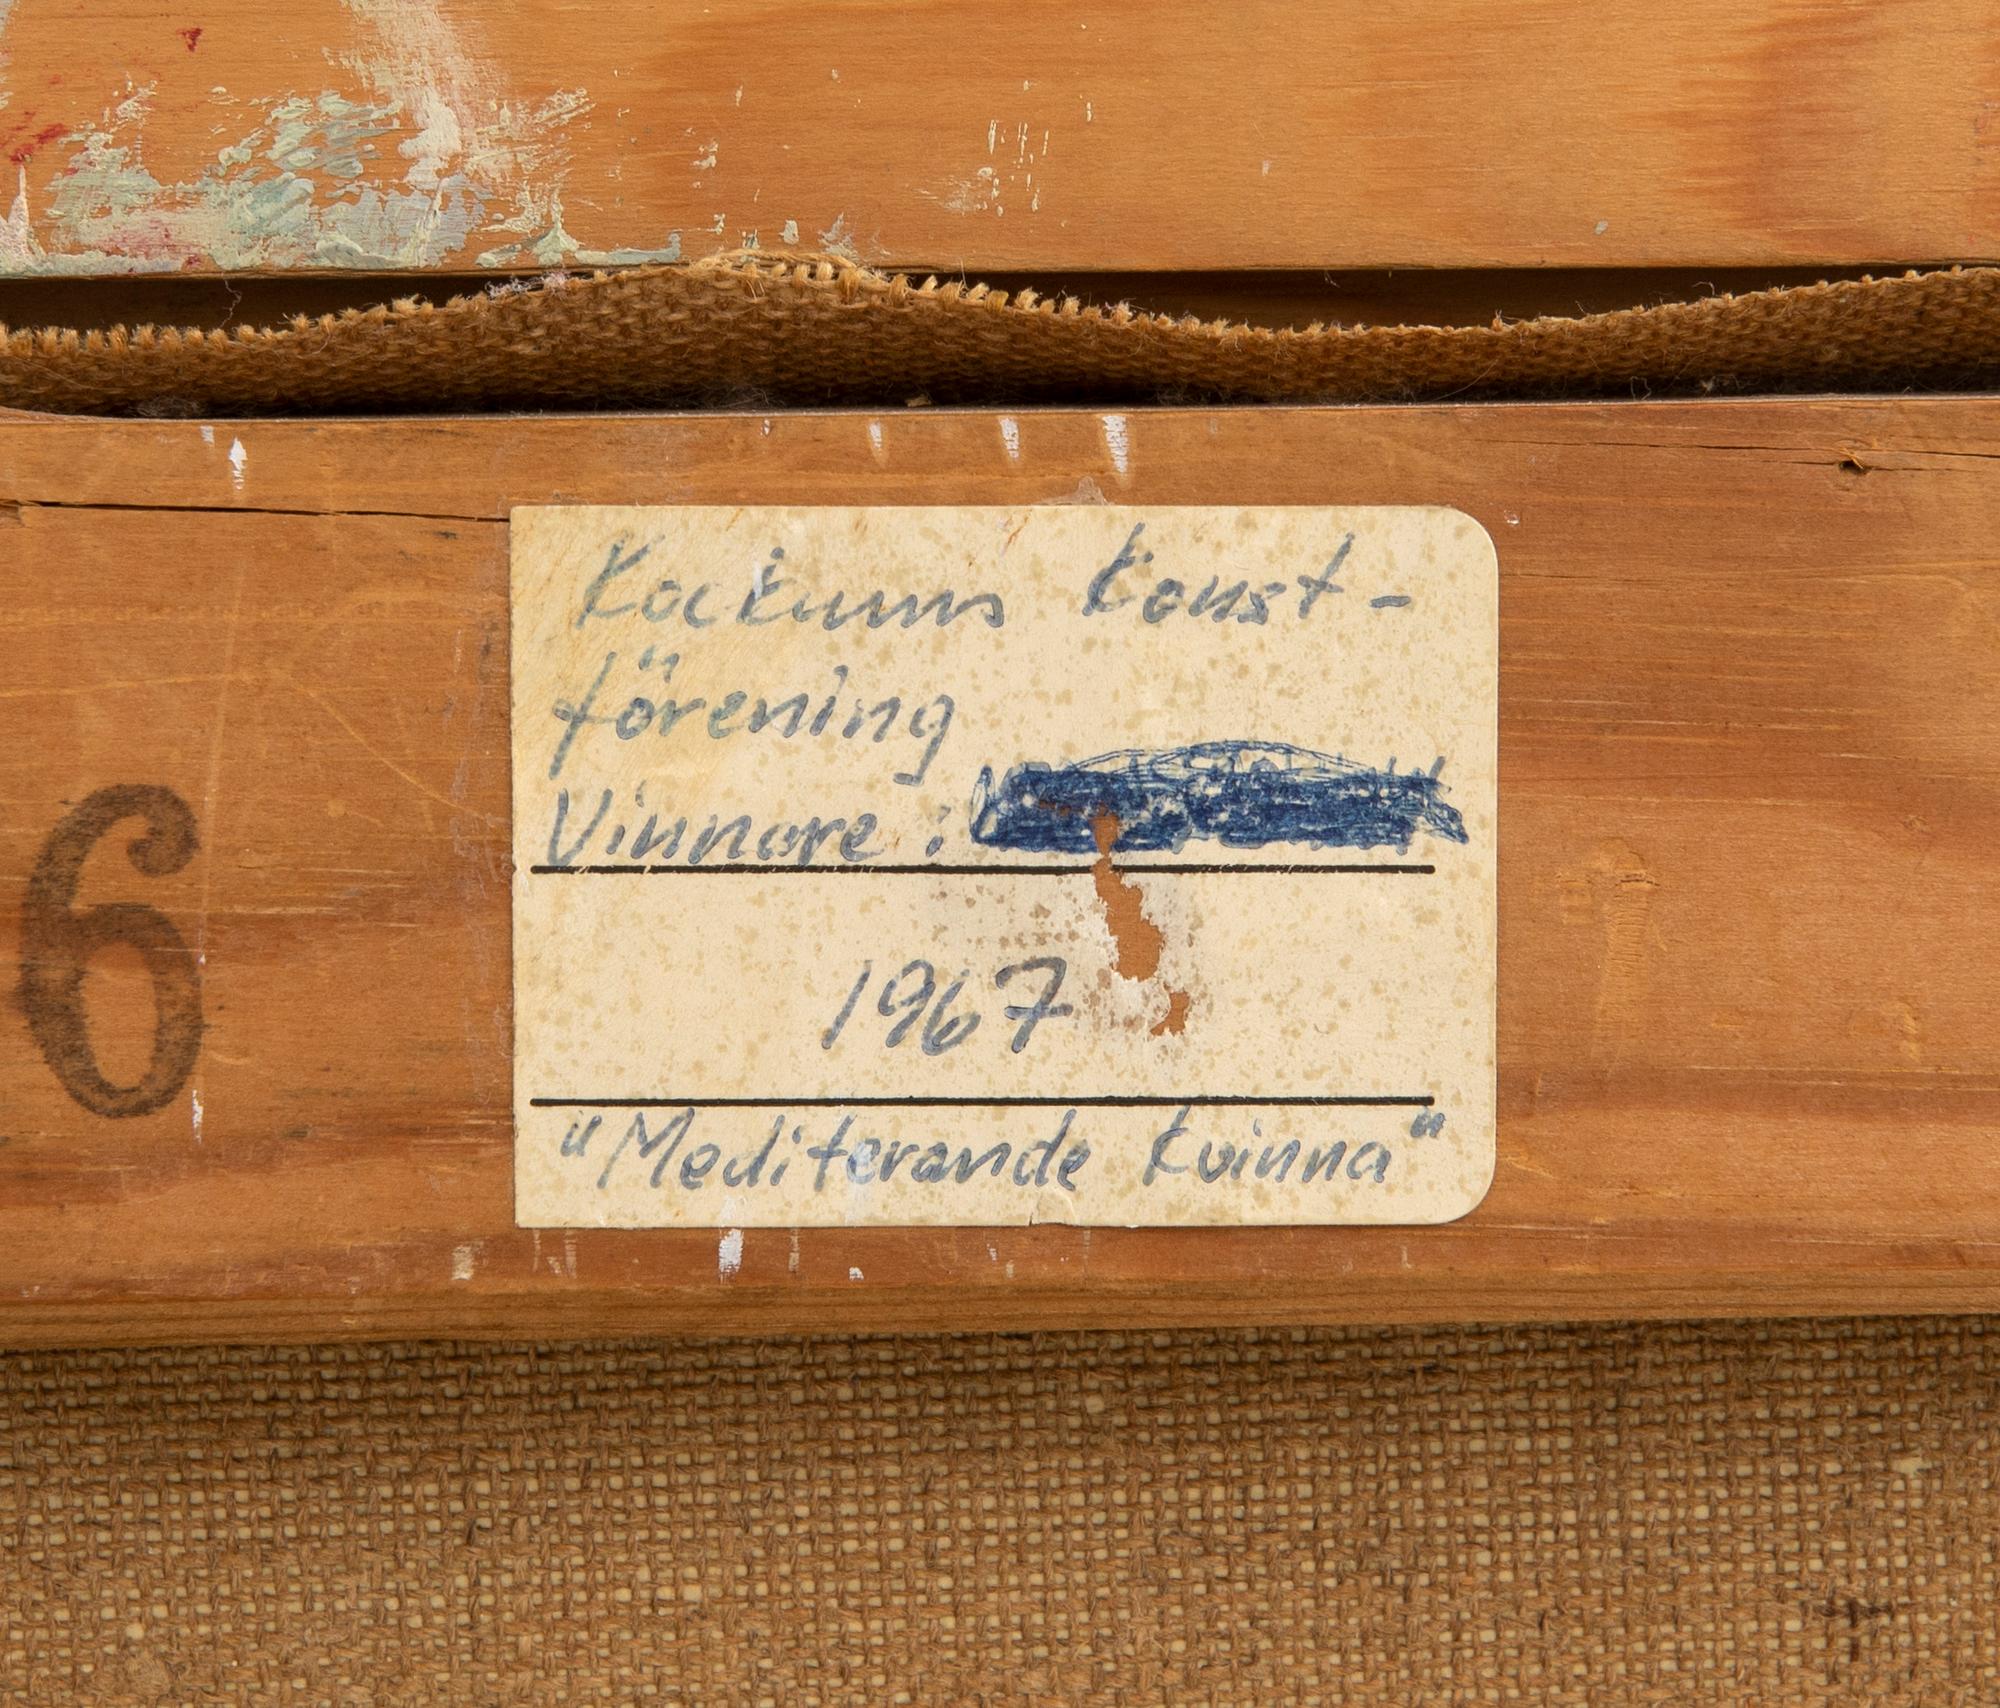 Kockums Konst-
förening
Vinnare:
6
1967
"Mediterande kvinna"